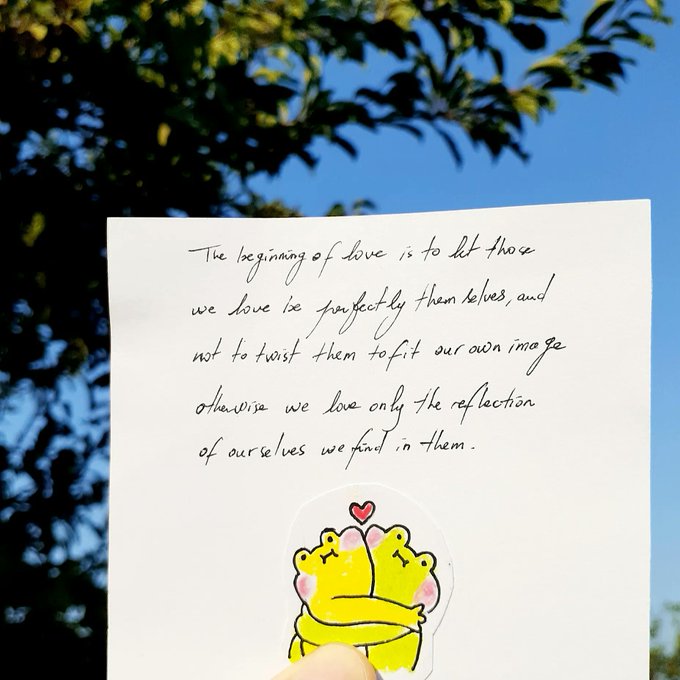 The beginning of love is to let those
we love be perfectly themselves, and
not to twist them to fit our own image
otherwise we love only the reflection
of ourselves we find in them.